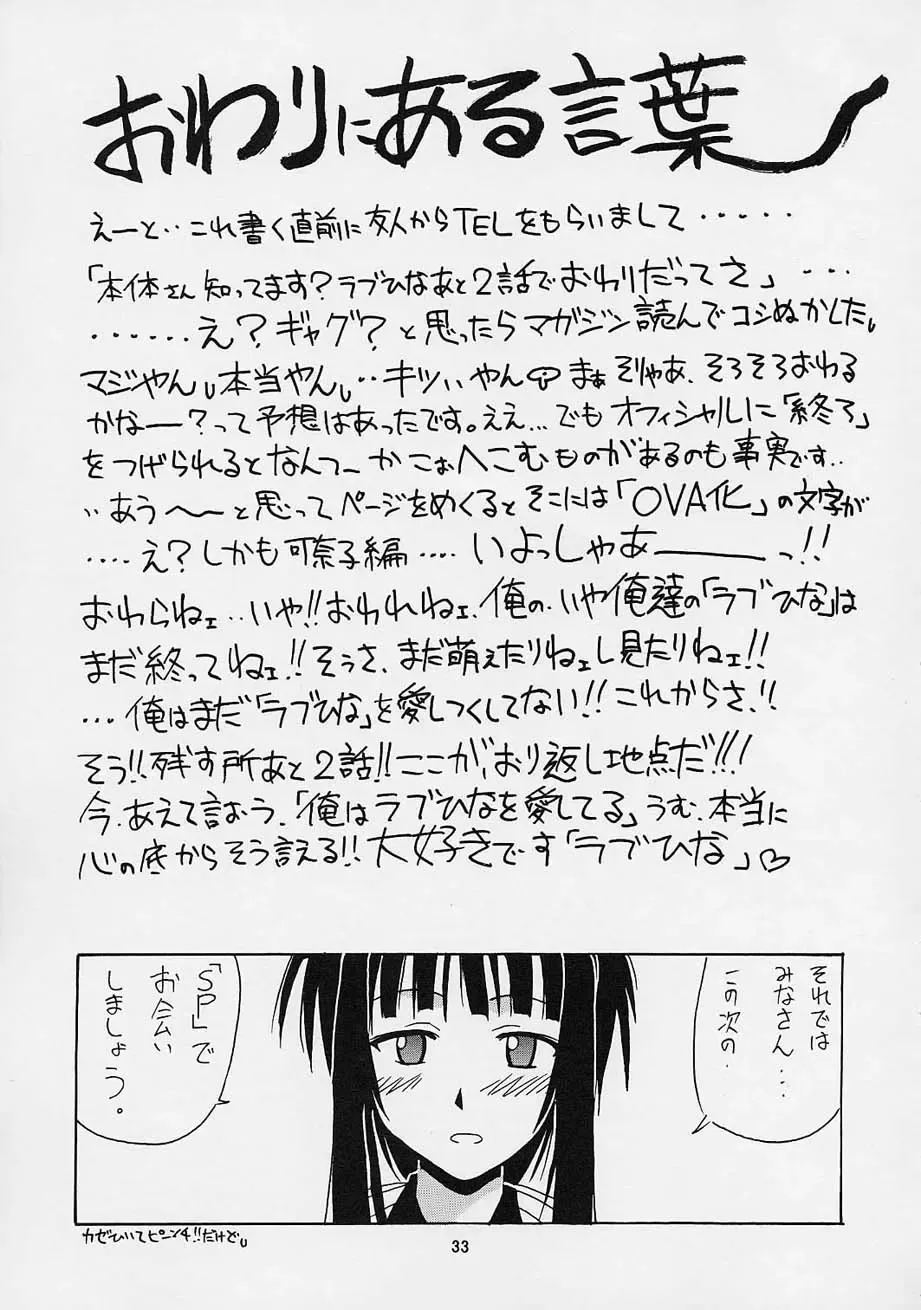 おわりにある言葉
えーと‥これ書く直前に友人からTELをもらいまして・・・・・
「本体さん知ってます？ラブひなあと2話でおわりだってさ」・・・・
・・・・・・え？ギャグ？と思ったらマガジン読んでコシぬかした。
マジやん。本当やん。‥キツいやん まぁ そりゃあ、そろそろおわる
かなー？って予想はあったです。ええ…でもオフィシャルに「終了」
をつげられるとなんてーかこぉへこむものがあるのも事実です‥
‥あう〜と思ってページをめくるとそこには「OVA化」の文字が
・・・・え？しかも可奈子編・・・・いよっしゃあーーっ!!
おわらねェ…いや!!おわれねェ、俺の、いや俺達の「ラブひな」は
まだ終ってねェ!!そうさ、まだ萌えたりねェし見たりねェ!!
…俺はまだ「ラブひな」を愛しつくしてない!!これからさ!!
そう!!残す所あと2話!!ここが、おり返し地点だ!!!
今、あえて言おう、「俺はラブひなを愛してる」うむ、本当に
心の底からそう言える!!大好きです「ラブひな」♡
それでは
みなさん…
この次の
「SP」で
お会い
しましょう。
カゼひいてピーンチ!!だけど。
33